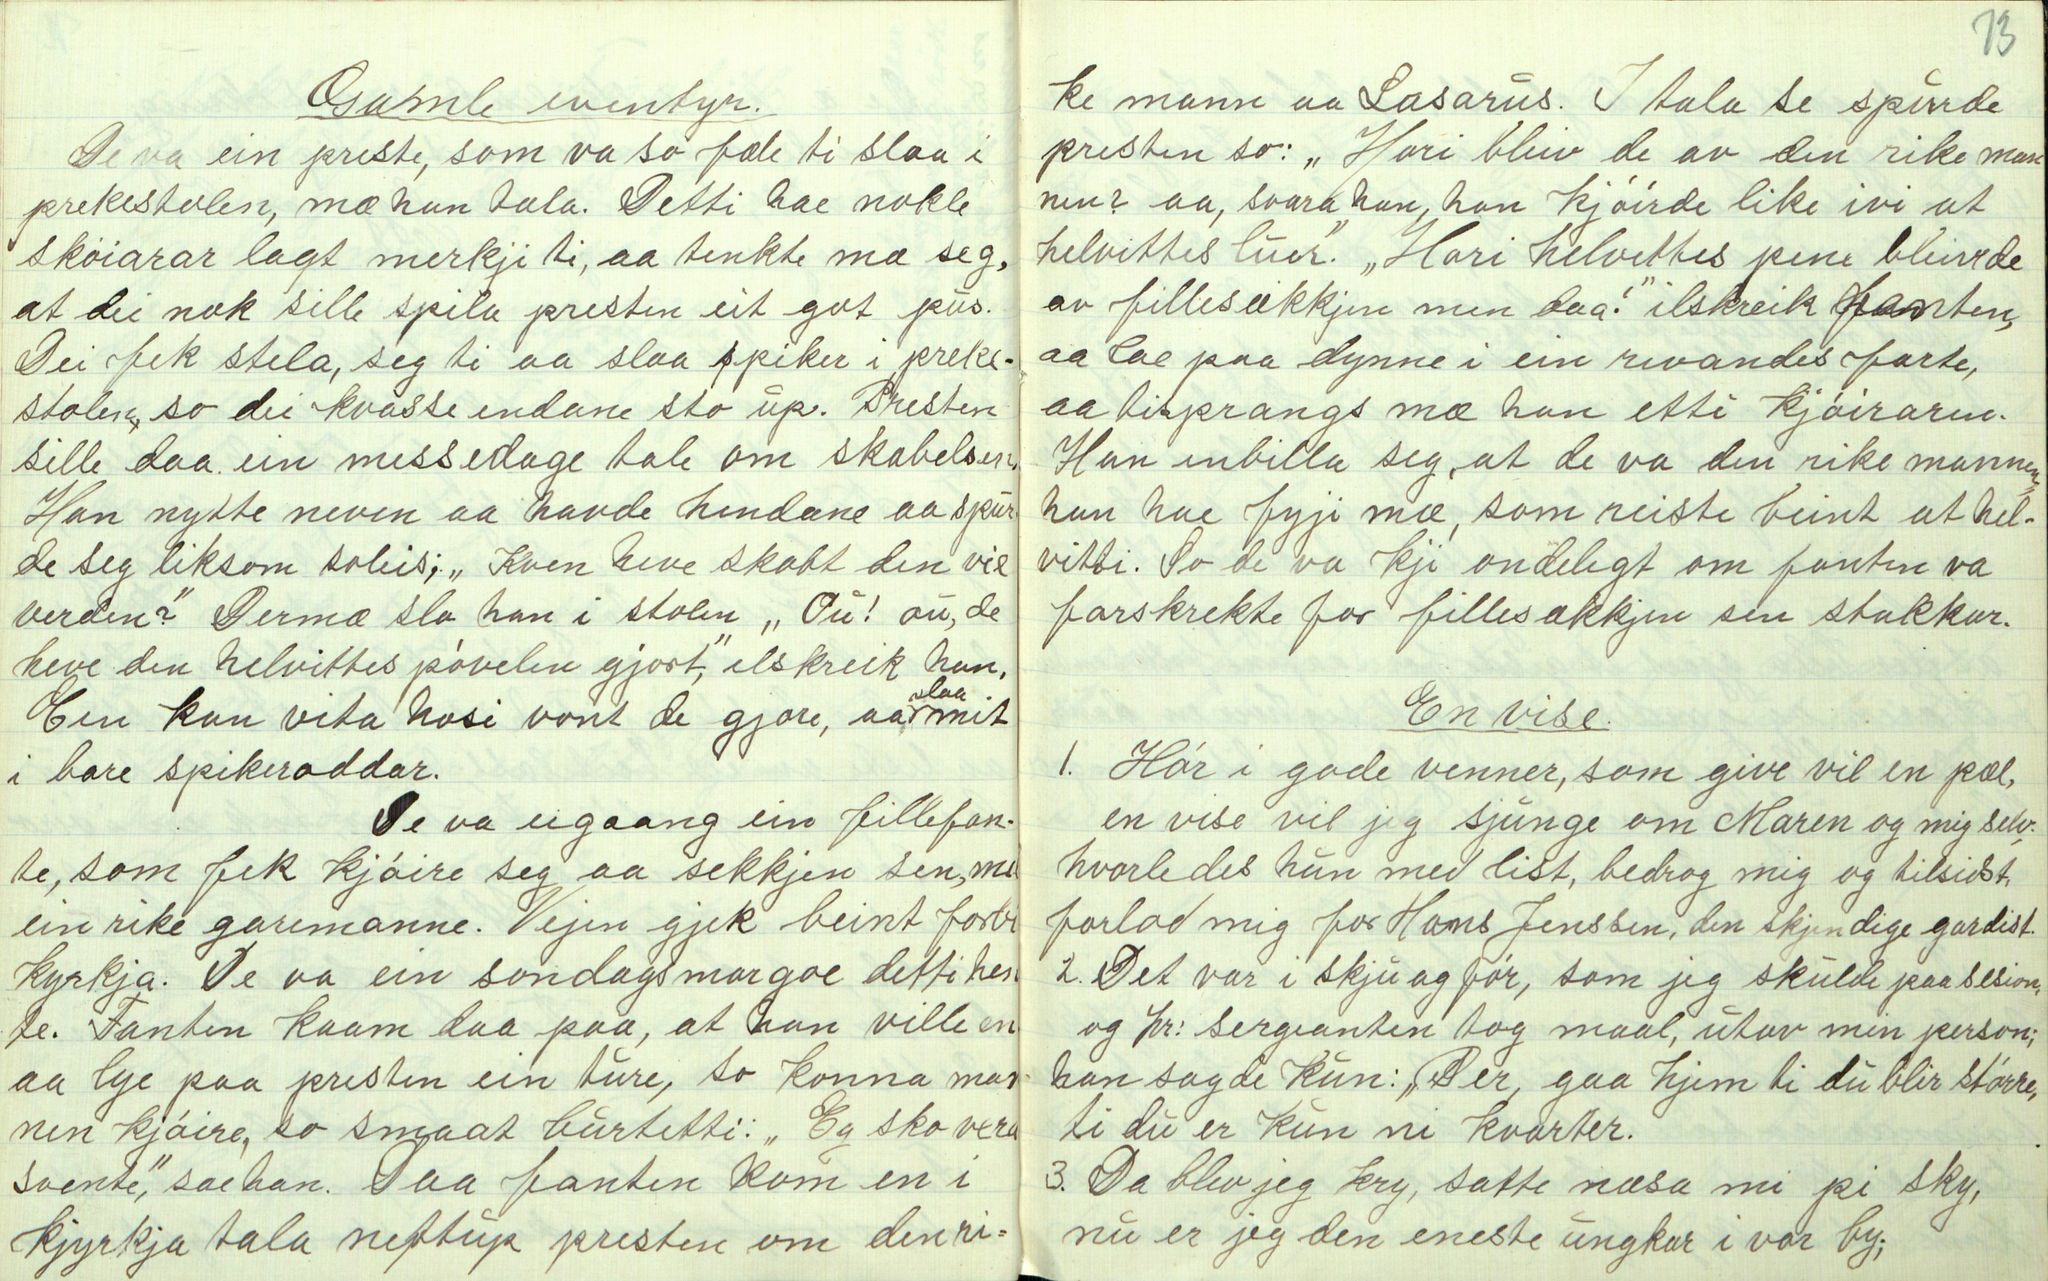 Gamle eventyr.
De va ein preste, som va so fæle ti slaa i
prekestolen, mæ han tala. Detti hae nokle
skøiarar lagt merkji ti, aa tenkte mæ seg,
at dei nok sille spila presten eit got pus.
Dei fek stela, seg ti aa slaa spiker i preke-
stolen, so dei kvasse endane sto up. Presten
sille daa ein messedage tale om skabelsen,
Han nytte neven aa havde hendane aa spur-
de seg liksom soleis; „Kven heve skabt den vie
verden?" Dermæ slo han i stolen „Ou! ou, de
heve den helvittes pøvelen gjort," ilskreik han.
Ein kan vita hosi vont de gjore, aa slaa mit
i bare spikeroddar.
De va eigaang ein fillefan-
te, som fek kjøire seg aa sekkjen sen, mæ
ein rike garemanne. Vejen gjek beint forbi
kyrkja. De va ein sondagsmorgoe detti hen-
te. Fanten kaam daa paa, at han ville en
aa lye paa presten ein ture, so konna man-
nen kjøire, so smaat burtetti: „Eg sko vera
svente," sae han. Daa fanten kom en i
kjyrkja tala nettup presten om den ri-
73
ke mann aa Lasarus. I tala se spurde
presten so: „Hori bleiv de av den rike man
nen? aa, svara han, han kjøirde like ivi at
helvittes luer." „Hori helvettes pene bleivrde
av fillesækkjen men daa!" ilskreik fanten,
aa lae paa dynne i ein revandes farte,
aa tisprangs mæ han etti kjøiraren.
Han enbilla seg, at de va den rike mannen,
han hae fyji mæ, som reiste beint at hel-
vitti. So de va kji ondelegt om fanten va
forskrekte for fillesækkjen sen stakkar.
En vise.
1. Hør i gode venner, som give vil en pæl,
en vise vil jeg sjunge om Maren og mig selv.
hvorledes hun med list, bedrog mig og tilsidst,
forlod mig for Hans Jenssen, den skjendige gardist.
2. Det var i skjuagfør, som jeg skulde paa sesion,
og hr: serganten tog maal, utav min person;
han sagde kun: „Per, gaa hjem ti du blir større,
ti du er kun ni kvarter.
3. Da blev jeg kry, satte næsa mi pi sky,
nu er jeg den eneste ungkar i vor by;